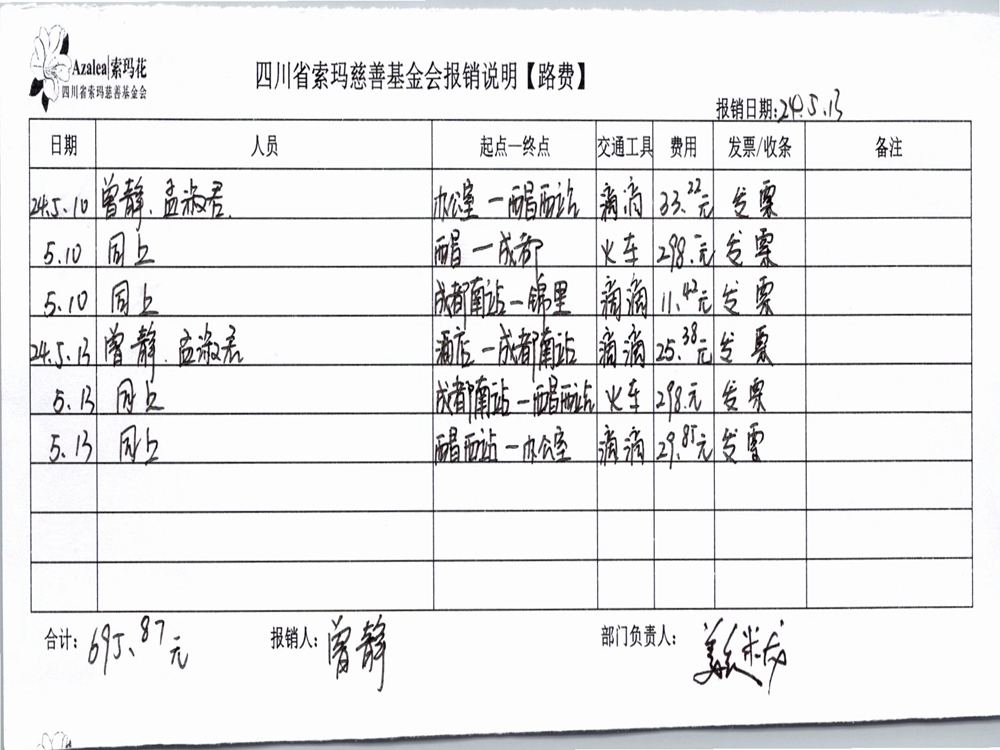 Azalea|索玛花
四川省索玛慈善基金会
四川省索玛慈善基金会报销说明【路费】
报销日期:24.5.13
日期 人员 起点—终点 交通工具 费用 发票/收条 备注
24.5.10 曾静.孟淑君. 办公室—西昌西站 滴滴 33.22元 发票
5.10 同上 西昌—成都 火车 298.元 发票
5.10 同上 成都南站—锦里 滴滴 11.42元 发票
24.5.13 曾静.孟淑君 酒店—成都南站 滴滴 25.38元 发票
5.13 同上 成都南站—西昌西站 火车 298.元 发票
5.13 同上 西昌西站—办公室 滴滴 29.85元 发票
合计: 695.87元 报销人: 曾静 部门负责人: